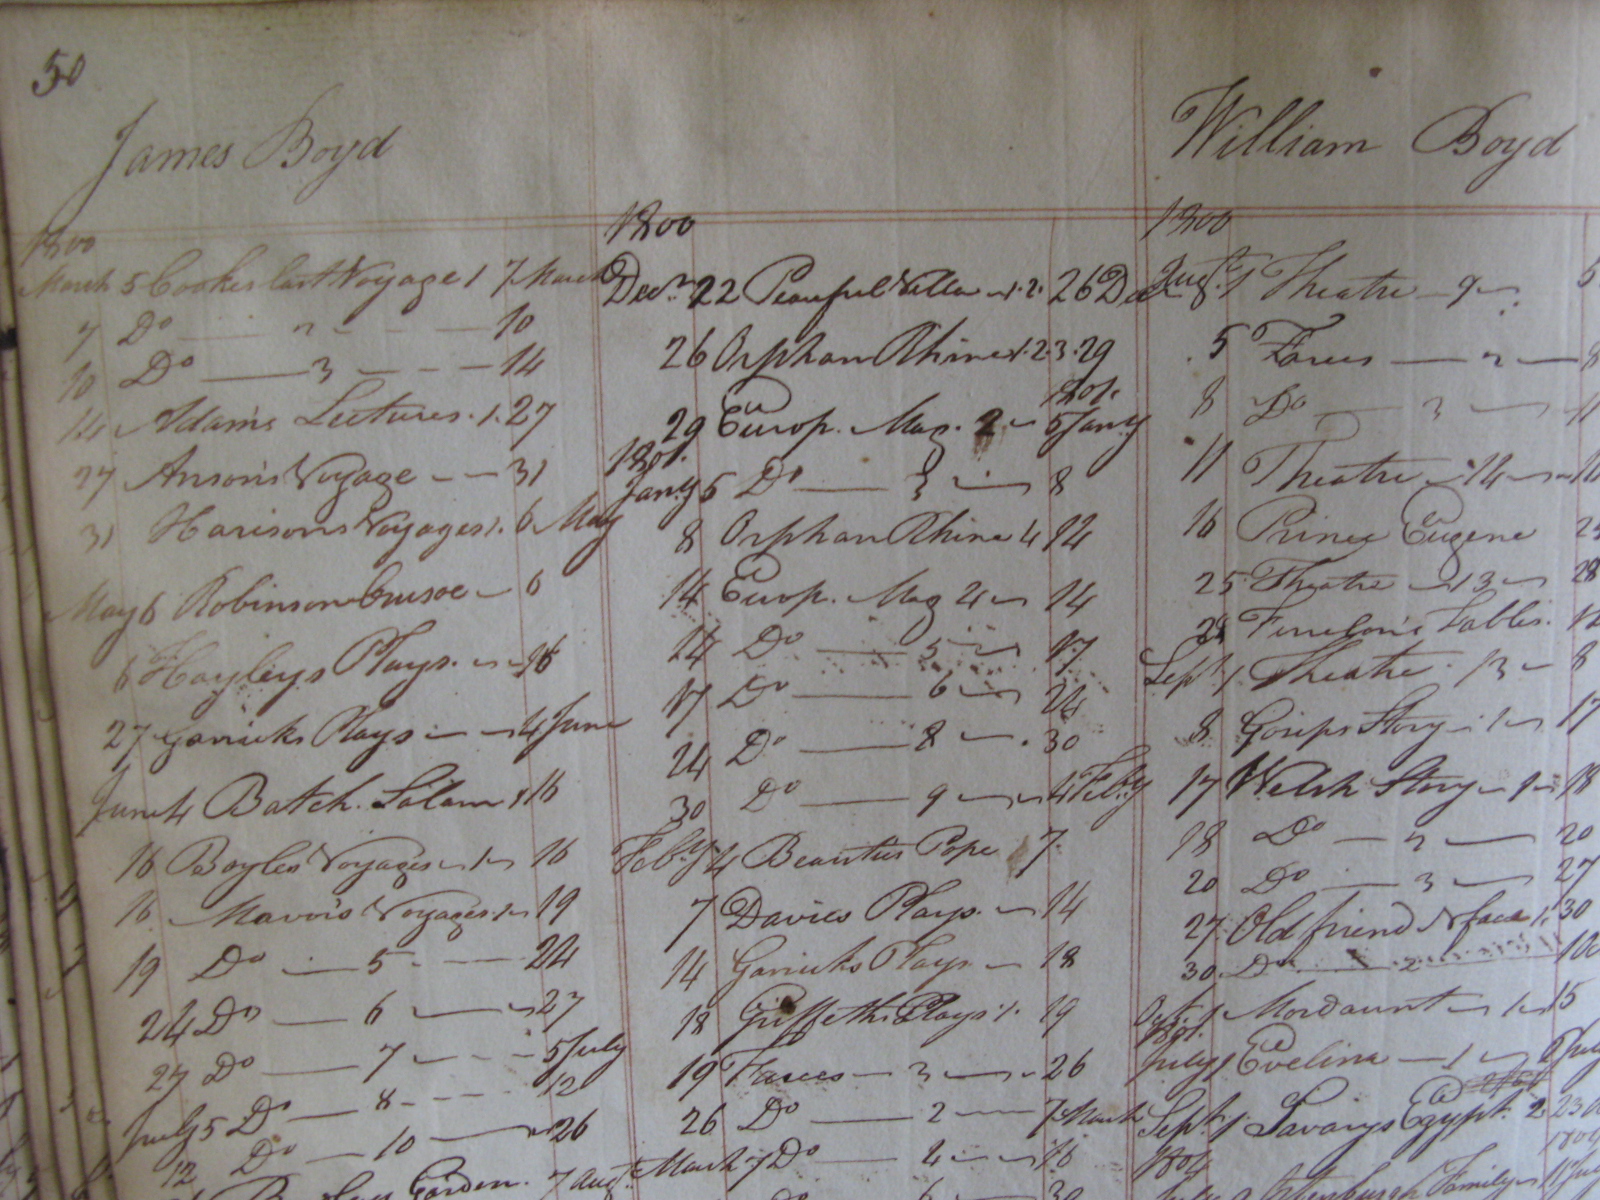 50
James Boyd
1800
March 5 Cookes last Voyage 1 7 March
7 Do 2 10
10 Do 3 14
14 Adams Lectures. 1. 27
27 Ansons Voyage 31
31 Harisons Voyages 1. 6 May
May 6 Robinson Crusoe 6
6 Hayleys Plays. 16
27 Garricks Plays 4 June
June 4 Batch. Salam 1 16
16 Boyles Voyages 1 16
16 Mavors Voyages 1 19
19 Do 5 24
24 Do 6 27
27 Do 7 5 July
July 5 Do 8 12
12 Do 10 26
Garden. 7 Augt.
1800
Decr. 22 Peaceful Villa 1.2. 26 Do
26 Orphan Rhine 1.2.3. 29
1801.
29 Europ. Mag. 2 5 Jany
1801.
Jany 5 Do 3 8
8 Orphan Rhine 4 14
14 Europ. Mag 4 14
14 Do 5 17
17 Do 6 24
24 Do 8 30
30 Do 9 4 Feby
Feby 4 Beauties Pope 7.
7 Davies Plays. 14
14 Garricks Plays 18
18 Griffeths Plays 1. 19
19 Farces 3 26
26 Do 2 7 March
March 7 Do 4 16
Do 6 30
William Boyd
1800
Augt. 1 Theatre 9 5
5 Farces 2 8
8 Do 3 11
11 Theatre 14 16
16 Prince Eugene 25
25 Theatre 13 28
28 Fenelon's Fables.
Sept. 1 Theatre 13 8
8 Gosips Story 1 17
17 Welsh Story 1 18
18 Do 2 20
20 Do 3 27
27 Old friend N face 1. 30
30 Do 2 10
Mordaunt 1 15
1801.
July 1 Evelina 1 6 July
Sept. 1 Savarys Egypt. 2 23
1804
Family